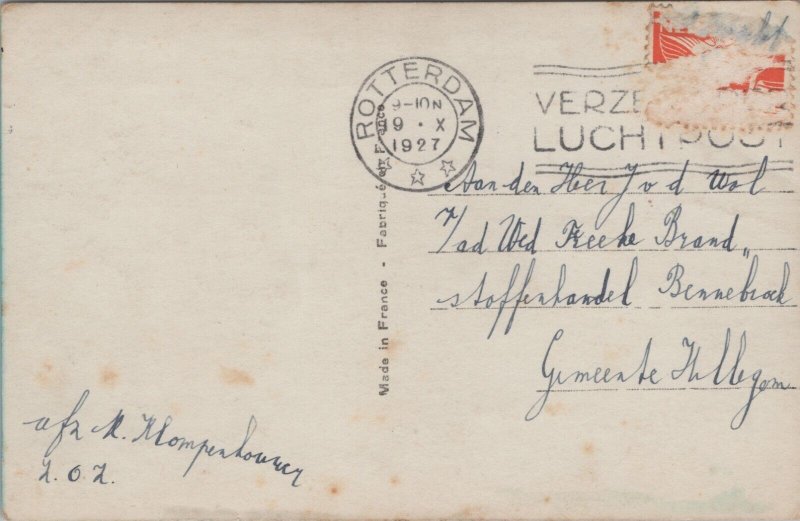 ROTTERDAM
9-10N
9 · X
1927
VERZE
LUCHTPOST
Made in France - Fabriqué en France
Aan den Heer J v d Wol
T/ad Wed Brand„
stoffenhandel Bennebroek
Gemeente Hillegom
afz M. Klompenhouwer
Z.O.Z.